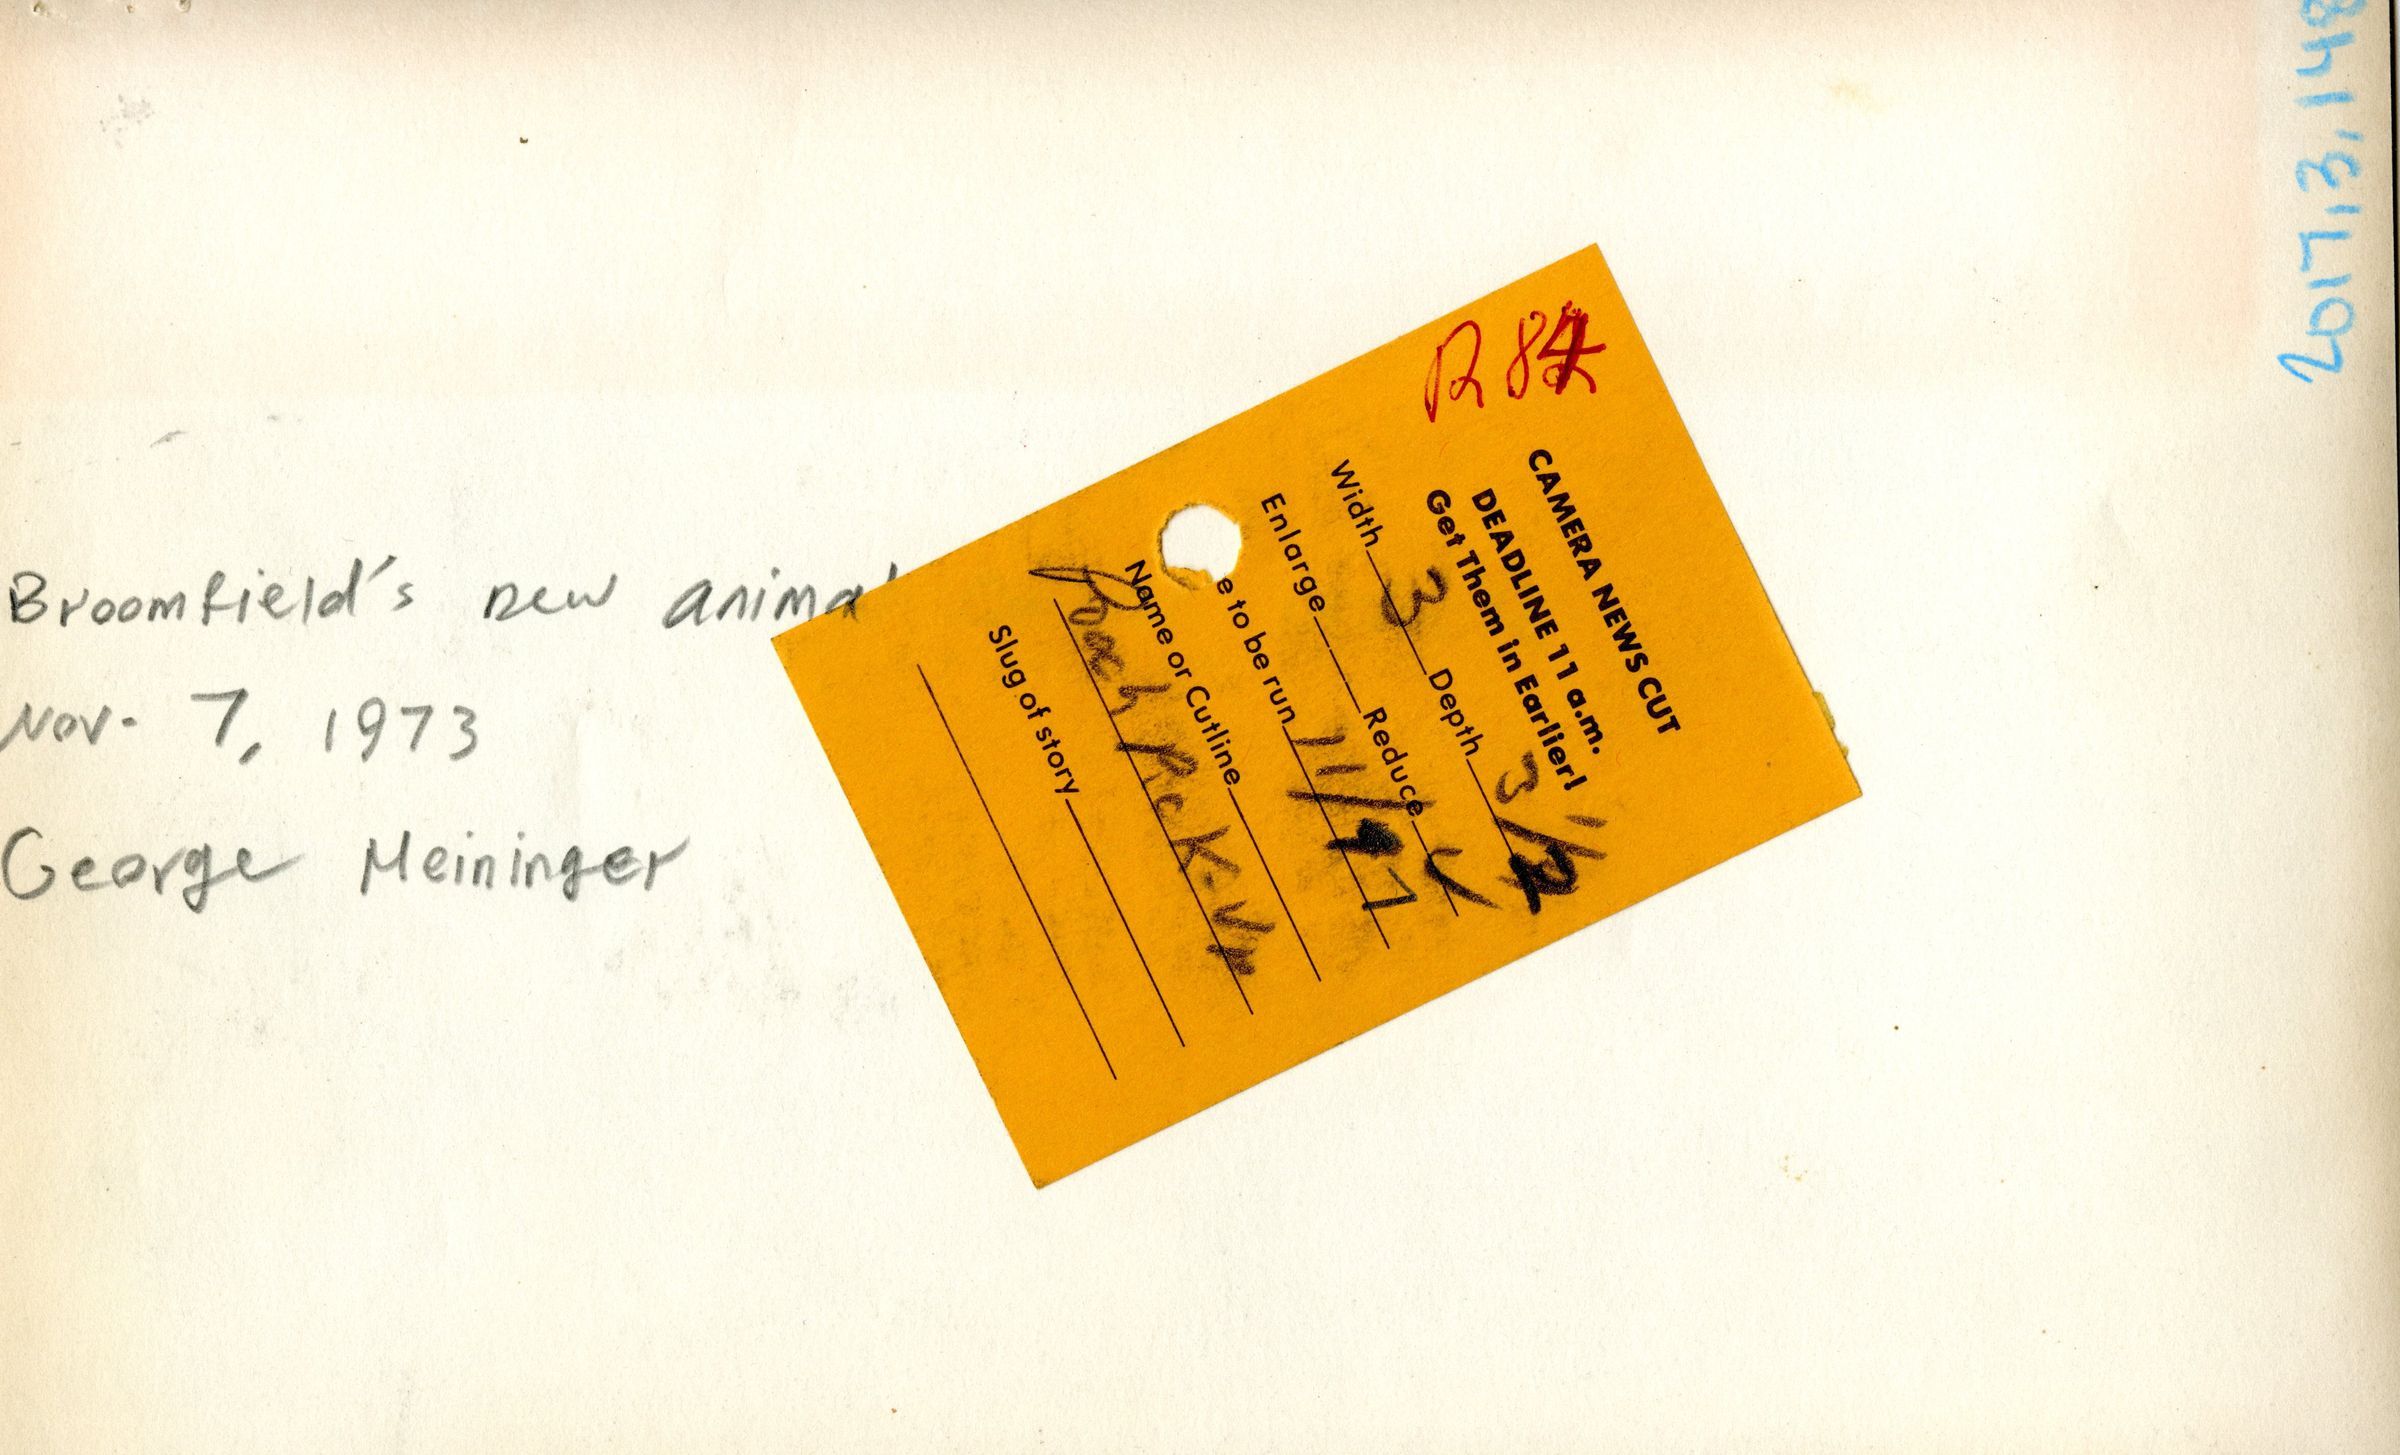 Broomfield's new animal
Nov. 7, 1973
George Meininger
R 84
CAMERA NEWS CUT
DEADLINE 11 a.m.
Get Them in Earlier!
Width 3 Depth 3 1/2
Enlarge Reduce ✓
e to be run 11/7
Name or Cutline
Slug of story
2017.13.148